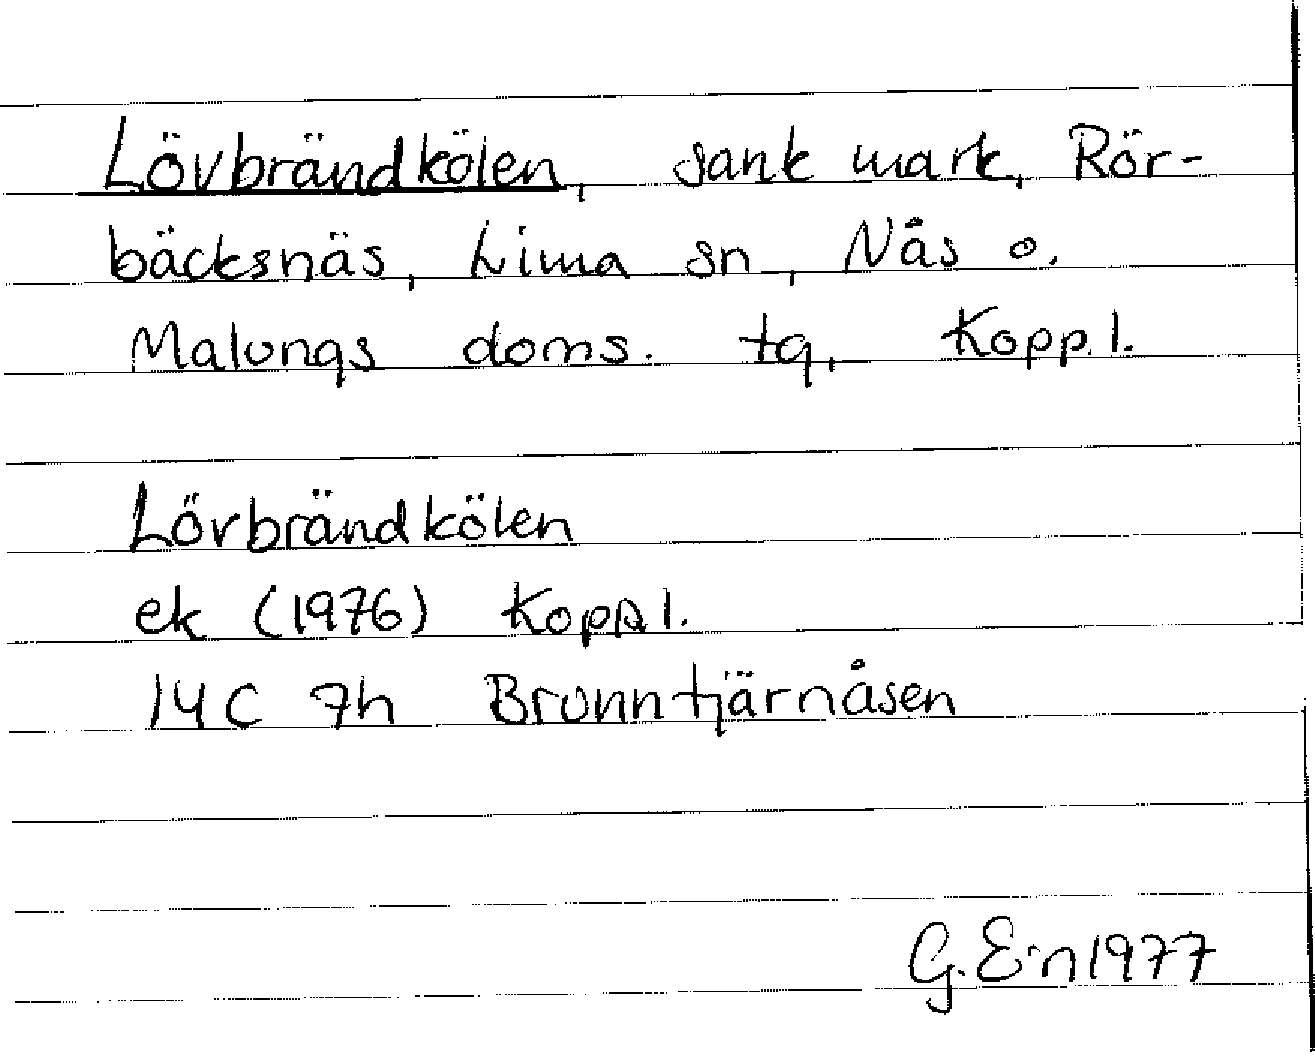 Lövbrändkölen, sank mark, Rör-
bäcksnäs, Lima sn, Nås o.
Malungs doms. tg, Kopp. l.
Lövbrändkölen
ek (1976) Kopp l.
14C 7h Brunntjärnåsen
G. E-n 1977